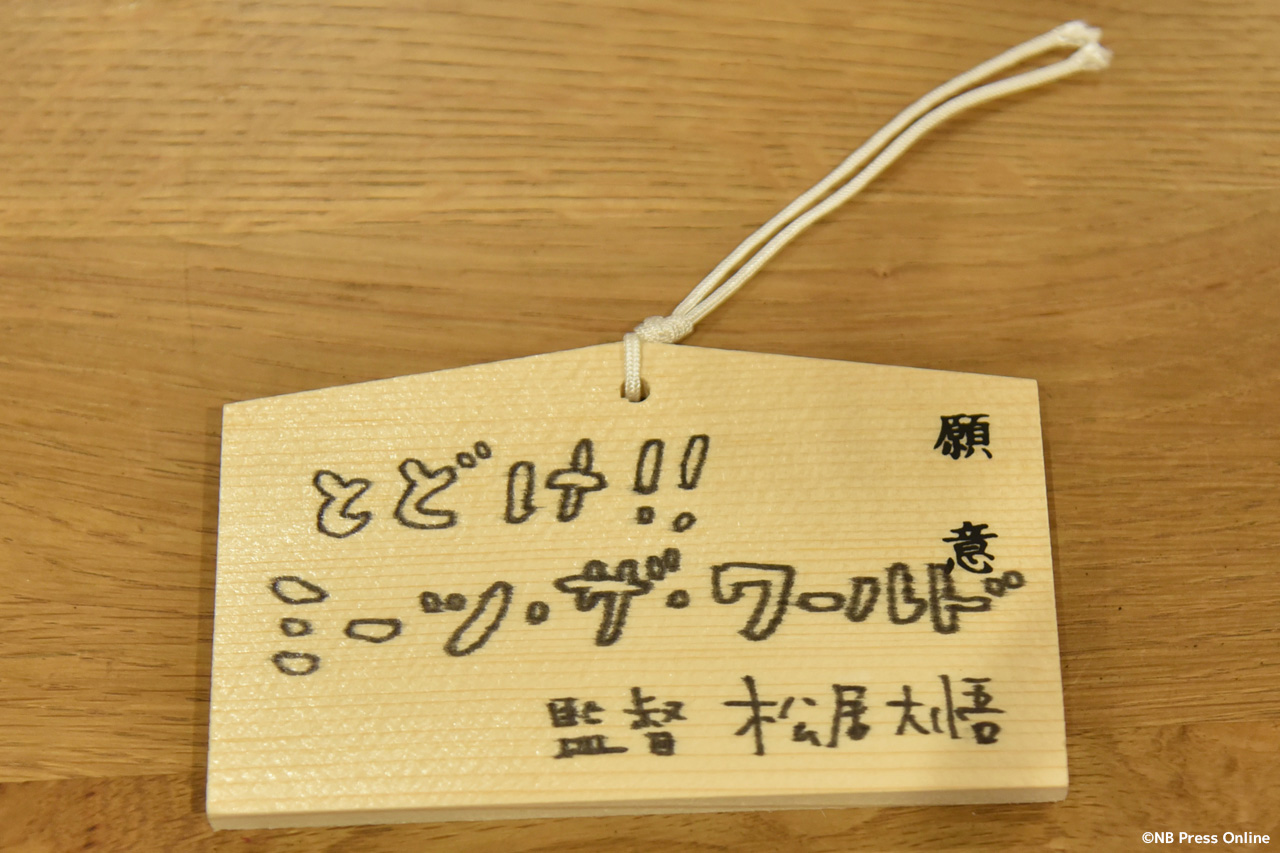 願意
とどけ!!
ミーツ・ザ・ワールド
監督 松居大悟
©NB Press Online